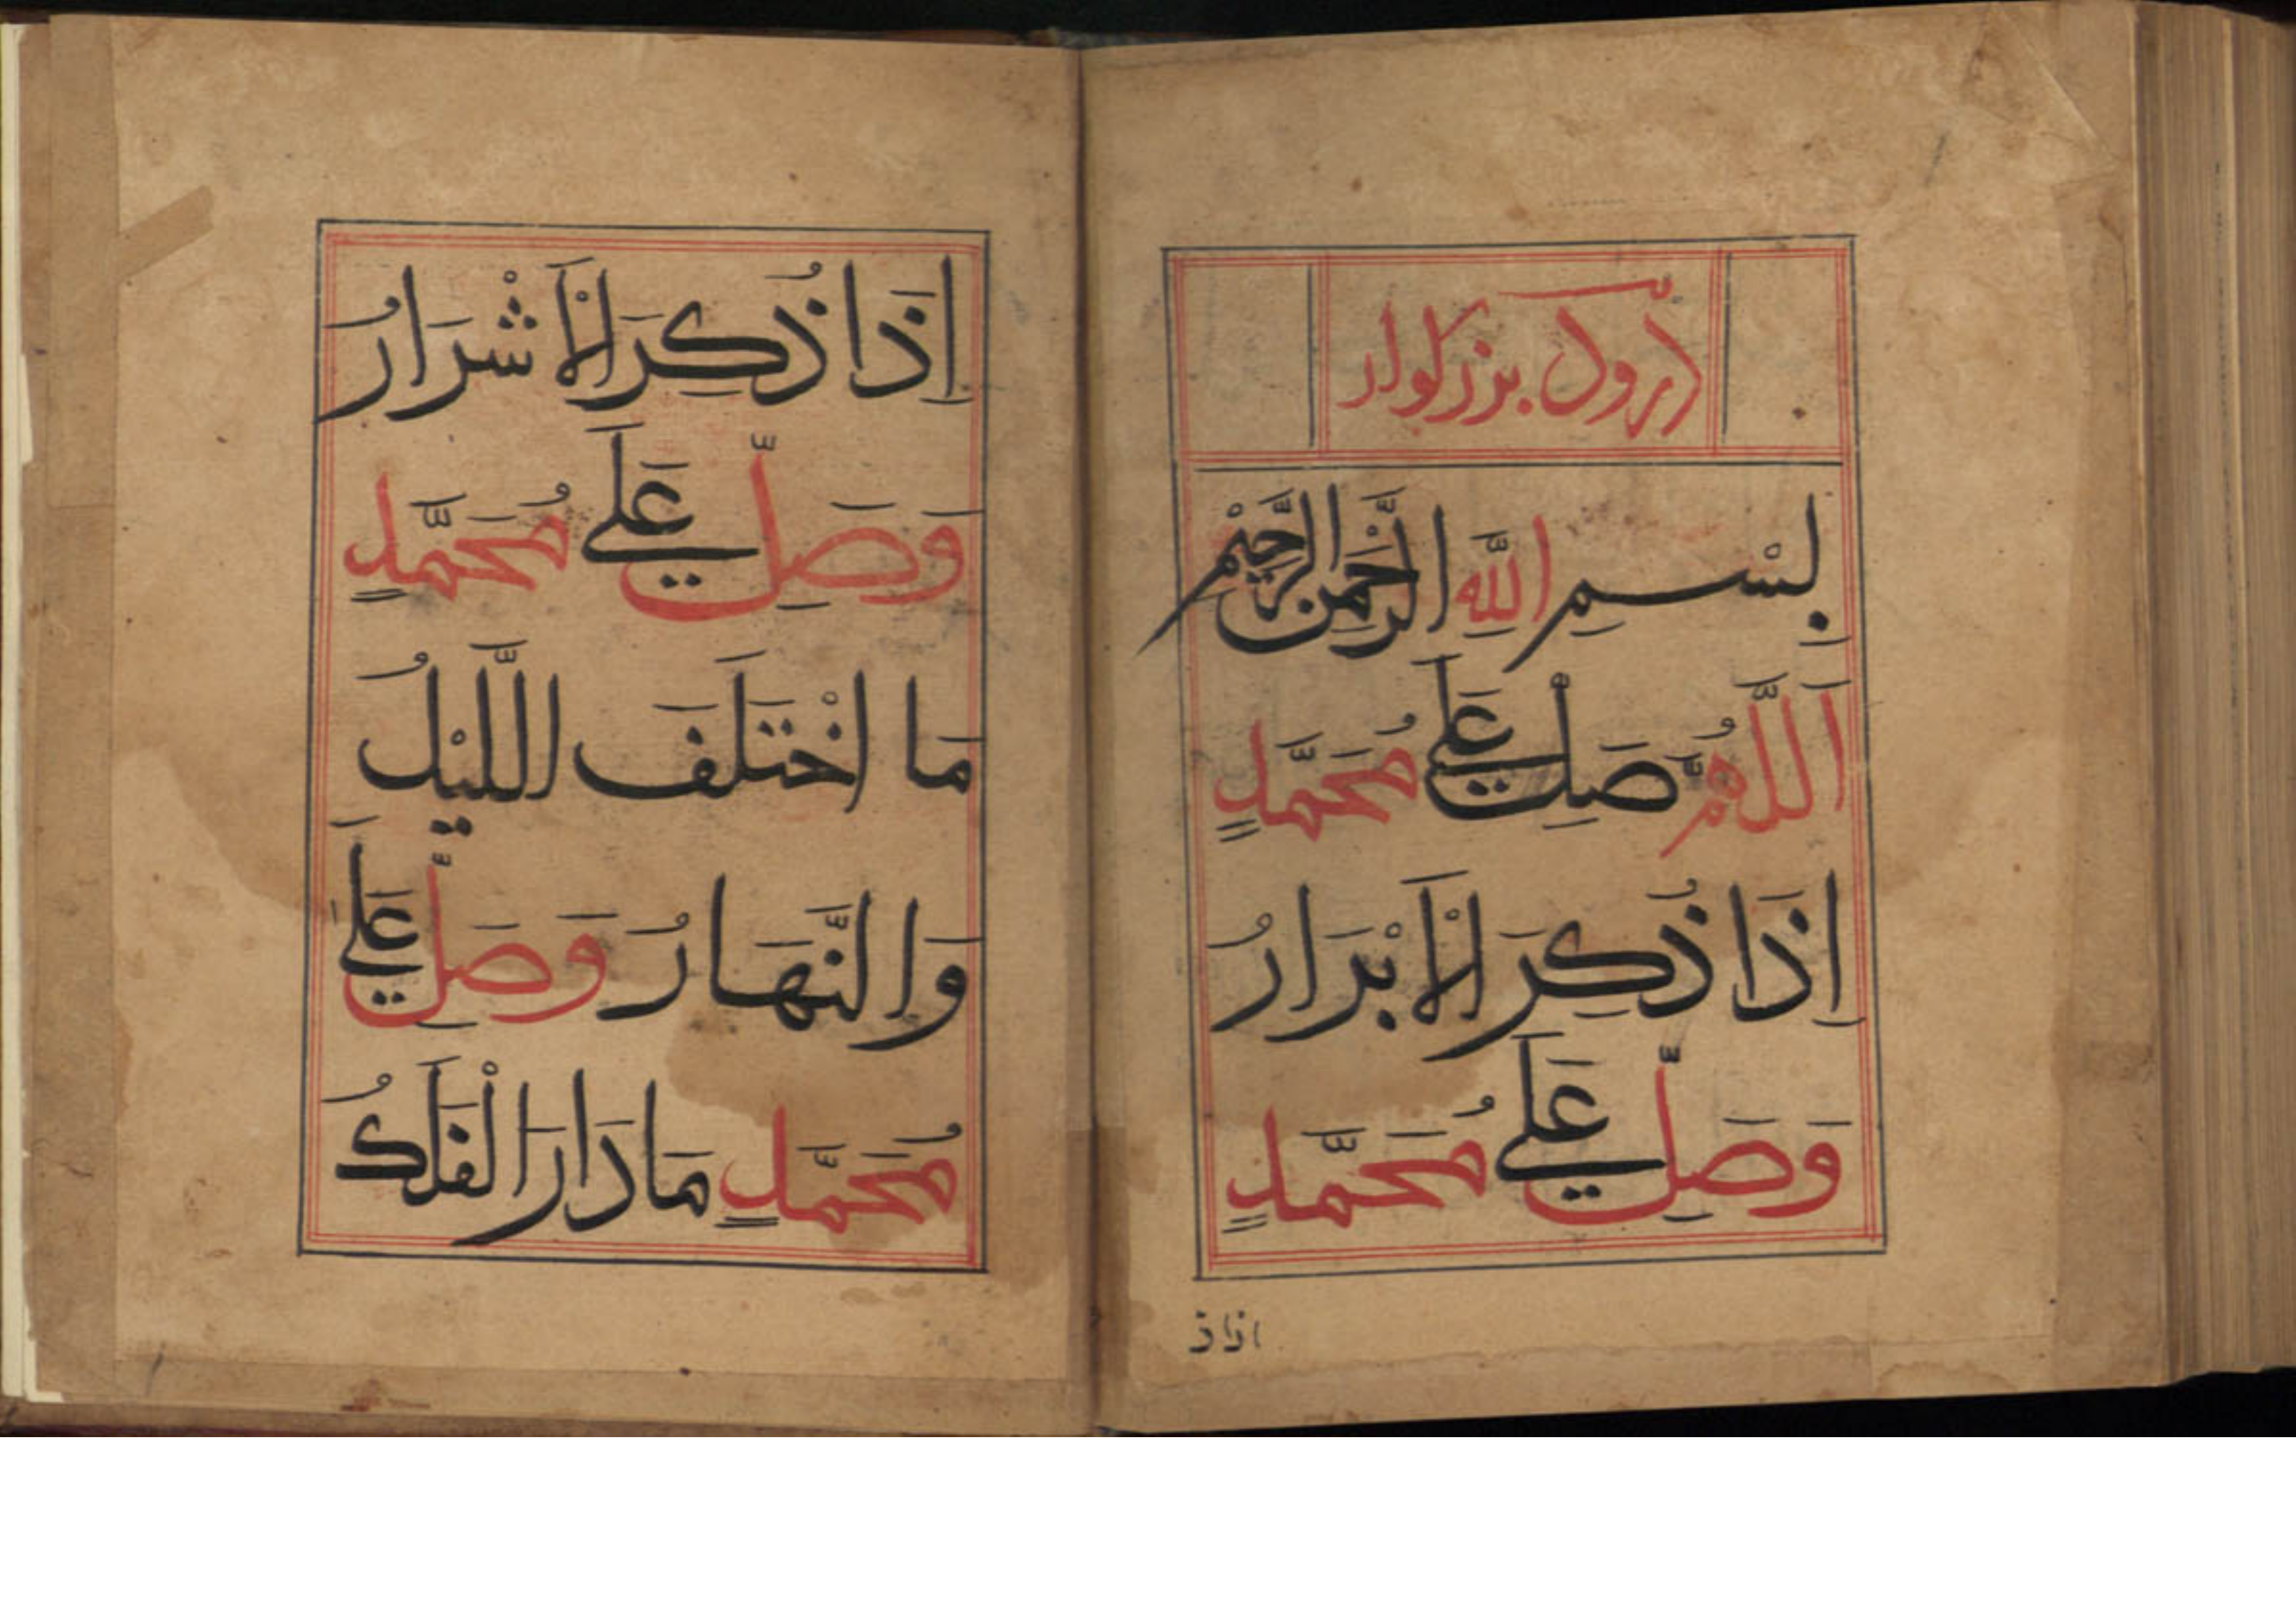 بِسْــمِ اللَّهِ الرَّحْمَنِ الرَّحِيْمِ
اَللَّهُمَّ صَلِّ عَلَى مُحَمَّدٍ
اِذَا ذُكِرَ الْاَبْرَارُ
وَصَلِّ عَلَى مُحَمَّدٍ
اذاذ
اِذَا ذُكِرَ الْاَشْرَارُ
وَصَلِّ عَلَى مُحَمَّدٍ
مَا اخْتَلَفَ اللَّيْلُ
وَالنَّهَارُ وَصَلِّ عَلَى
مُحَمَّدٍ مَا دَارَ الْفَلَكُ